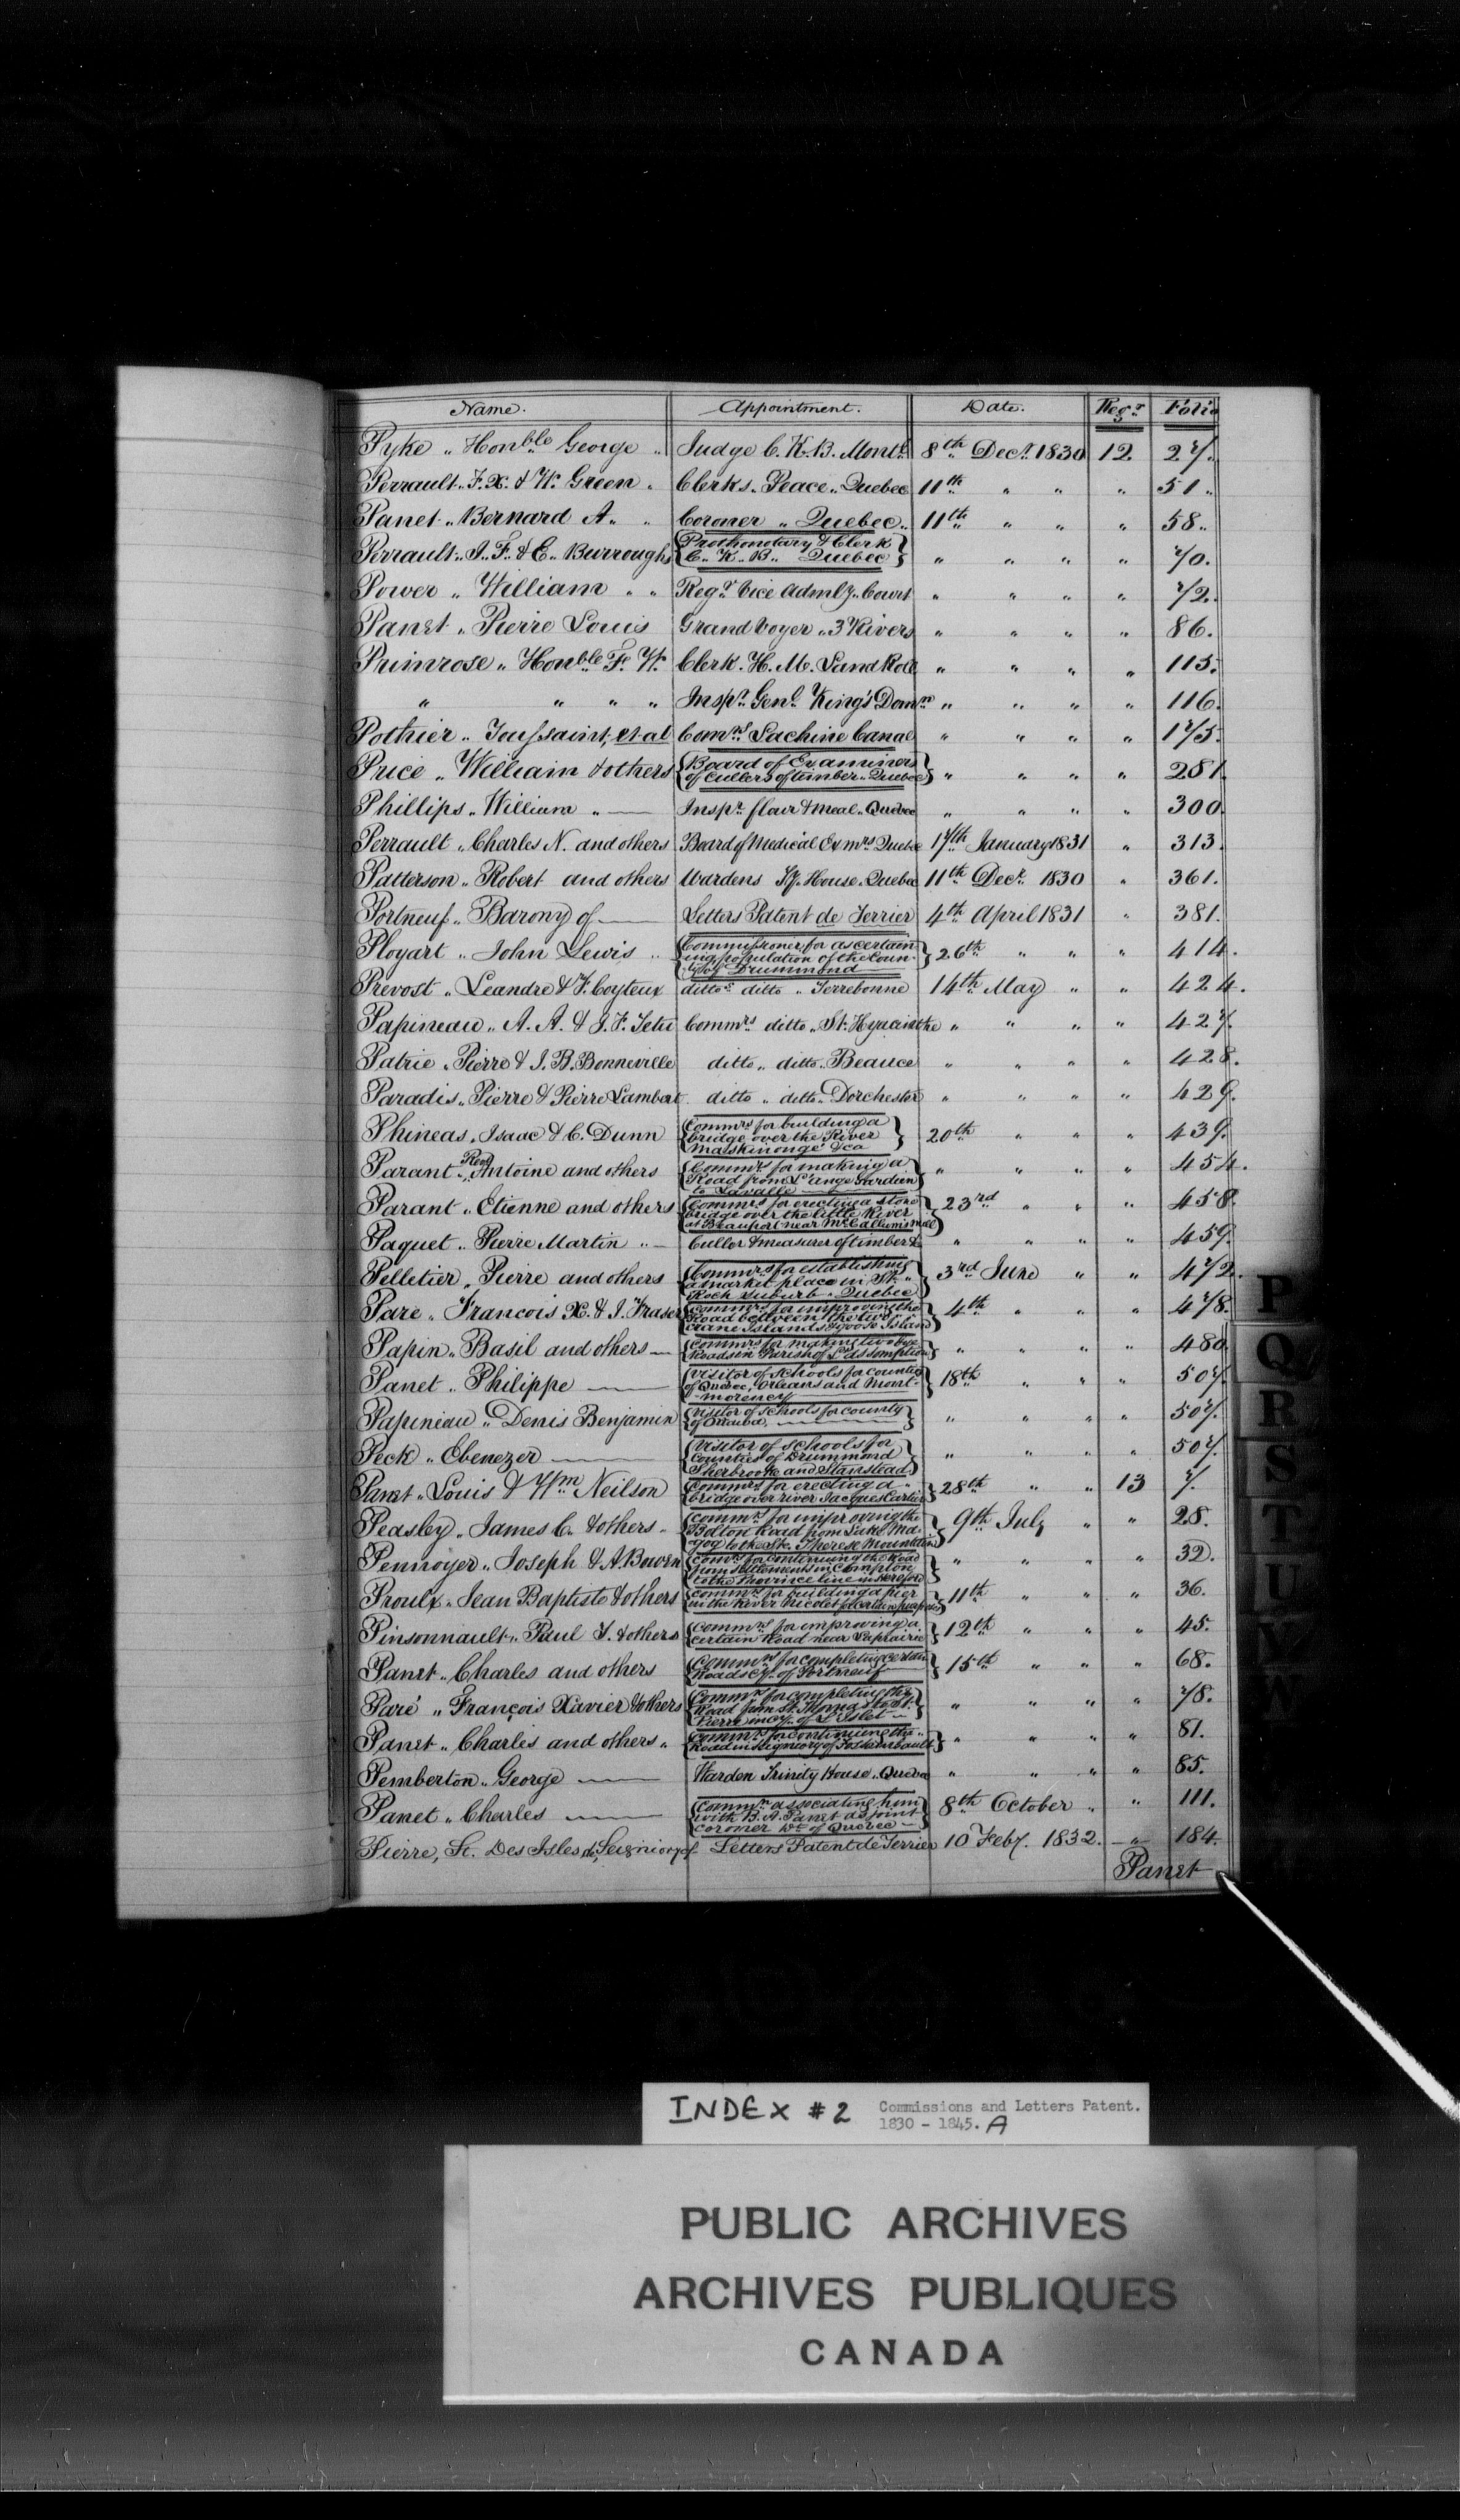 Name. Appointment. Date. Regr. Folio
Pyke „ Honble George „ Judge C. K. B. Montl. 8th Decr. 1830 12 27.
Perrault „ F. X. & W. Green „ Clerks „ Peace „ Quebec 11th „ „ „ 51 „
Panet „ Bernard A. „ „ Coroner „ Quebec „ 11th „ „ „ 58 „
Perrault „ J. F. & E. Burroughs {Prothonotary & Clerk
C. K. B. Quebec} „ „ „ „ 70.
Power „ William „ „ Regr. Vice Admlty. Court „ „ „ „ 72.
Panet „ Pierre Louis Grand Voyer „ 3 Rivers „ „ „ „ 86.
Primrose „ Honble F. W. Clerk. H. M. Land Roll „ „ „ „ 115.
„ „ „ „ Inspr. Genl. King's Domn „ „ „ „ 116.
Pothier „ Toussaint, et al Comrs. Lachine Canal „ „ „ „ 175.
Price „ William & others {Board of Examiners
of Cullers of timber „ Quebec} „ „ „ „ 281.
Phillips „ William „ — Inspr. flour & meal „ Quebec „ „ „ „ 300.
Perrault „ Charles N. and others Board of Medical Exmrs Quebec 17th January 1831 „ 313.
Patterson „ Robert and others Wardens Ty. House „ Quebec 11th Decr. 1830 „ 361.
Portneuf „ Barony of — Letters Patent de Terrier 4th April 1831 „ 381.
Ployart „ John Lewis „ {Commissioner for ascertain-
ing population of the Coun-
ty of Drummond} 26th „ „ „ 414.
Prevost „ Leandre & F. Coyteux ditto „ ditto „ Terrebonne 14th May „ „ 424.
Papineau „ A. A. & J. F. Tetu Commrs ditto „ St. Hyacinthe „ „ „ „ 427.
Patrie „ Pierre & J. B. Bonneville ditto „ ditto „ Beauce „ „ „ „ 428.
Paradis „ Pierre & Pierre Lambert ditto „ ditto „ Dorchester „ „ „ „ 429.
Phineas „ Isaac & C. Dunn {Commrs for building a
bridge over the River
Maskinongé &ca} 20th „ „ „ 439.
Parant „ Revd. Antoine and others {Commrs for making a
Road from L'ange Gardien
to Lavalle} „ „ „ „ 454.
Parant „ Etienne and others {Commrs for erecting a stone
bridge over the little River
at Beauport near McCallum's mill} 23rd „ „ „ 458.
Paquet „ Pierre Martin „ — Culler & measurer of timber & „ „ „ „ 459.
Pelletier „ Pierre and others {Commrs for establishing
a market place in St.
Roch suburb „ Quebec} 3rd June „ „ 472.
Pare „ Francois X. & J. Fraser {Commrs for improving the
Road between the two
Crane Islands & Goose Island} 4th „ „ „ 478.
Papin „ Basil and others — {Commrs for making two bye
Roads in Parish of L'assomption} „ „ „ „ 480.
Panet „ Philippe — {Visitor of schools for counties
of Quebec, Orleans and Mont-
morency} 18th „ „ „ 507.
Papineau „ Denis Benjamin {Visitor of schools for county
of Ottawa, —} „ „ „ „ 507.
Peck „ Ebenezer — {Visitor of schools for
counties of Drummond
Sherbrooke and Stanstead} „ „ „ „ 507.
Panet „ Louis & Wm Neilson {Commrs for erecting a
bridge over river Jacques Cartier} 28th „ „ 13 7.
Peasley „ James C. & others „ {Commrs for improving the
Bolton Road from Lake Ma-
gog to the St. Therese Mountain} 9th July „ „ 28.
Pennoyer „ Joseph & A. Bowen {Comrs for continuing the Road
from settlements in Compton
to the Province line in Hereford} „ „ „ „ 32.
Proulx „ Jean Baptiste & others {Commrs for building a pier
in the River Nicolet & certain purposes} 11th „ „ „ 36.
Pinsonnault „ Paul T. & others {Commrs for improving a
certain Road near Laprairie} 12th „ „ „ 45.
Panet „ Charles and others {Commrs for completing certain
Roads Cy. of Portneuf} 15th „ „ „ 68.
Paré „ François Xavier & others {Commrs for completing the
Road from St. Thomas to St.
Pierre in Cy. of L'Islet} „ „ „ „ 78.
Panet „ Charles and others „ {Commrs for continuing the
Road in seigniory of Fossambault} „ „ „ „ 81.
Pemberton „ George — Warden Trinity House „ Quebec „ „ „ „ 85.
Panet „ Charles — {Commn associating him
with B. A. Panet as joint
coroner Dt. of Quebec} 8th October „ „ 111.
Pierre, St. Des Isles de, Seigniory of Letters Patent de Terrier 10 Feby. 1832. „ 184.
Panet
P
Q
R
S
T
U
V
W
INDEX #2 Commissions and Letters Patent.
1830 - 1845. A
PUBLIC ARCHIVES
ARCHIVES PUBLIQUES
CANADA